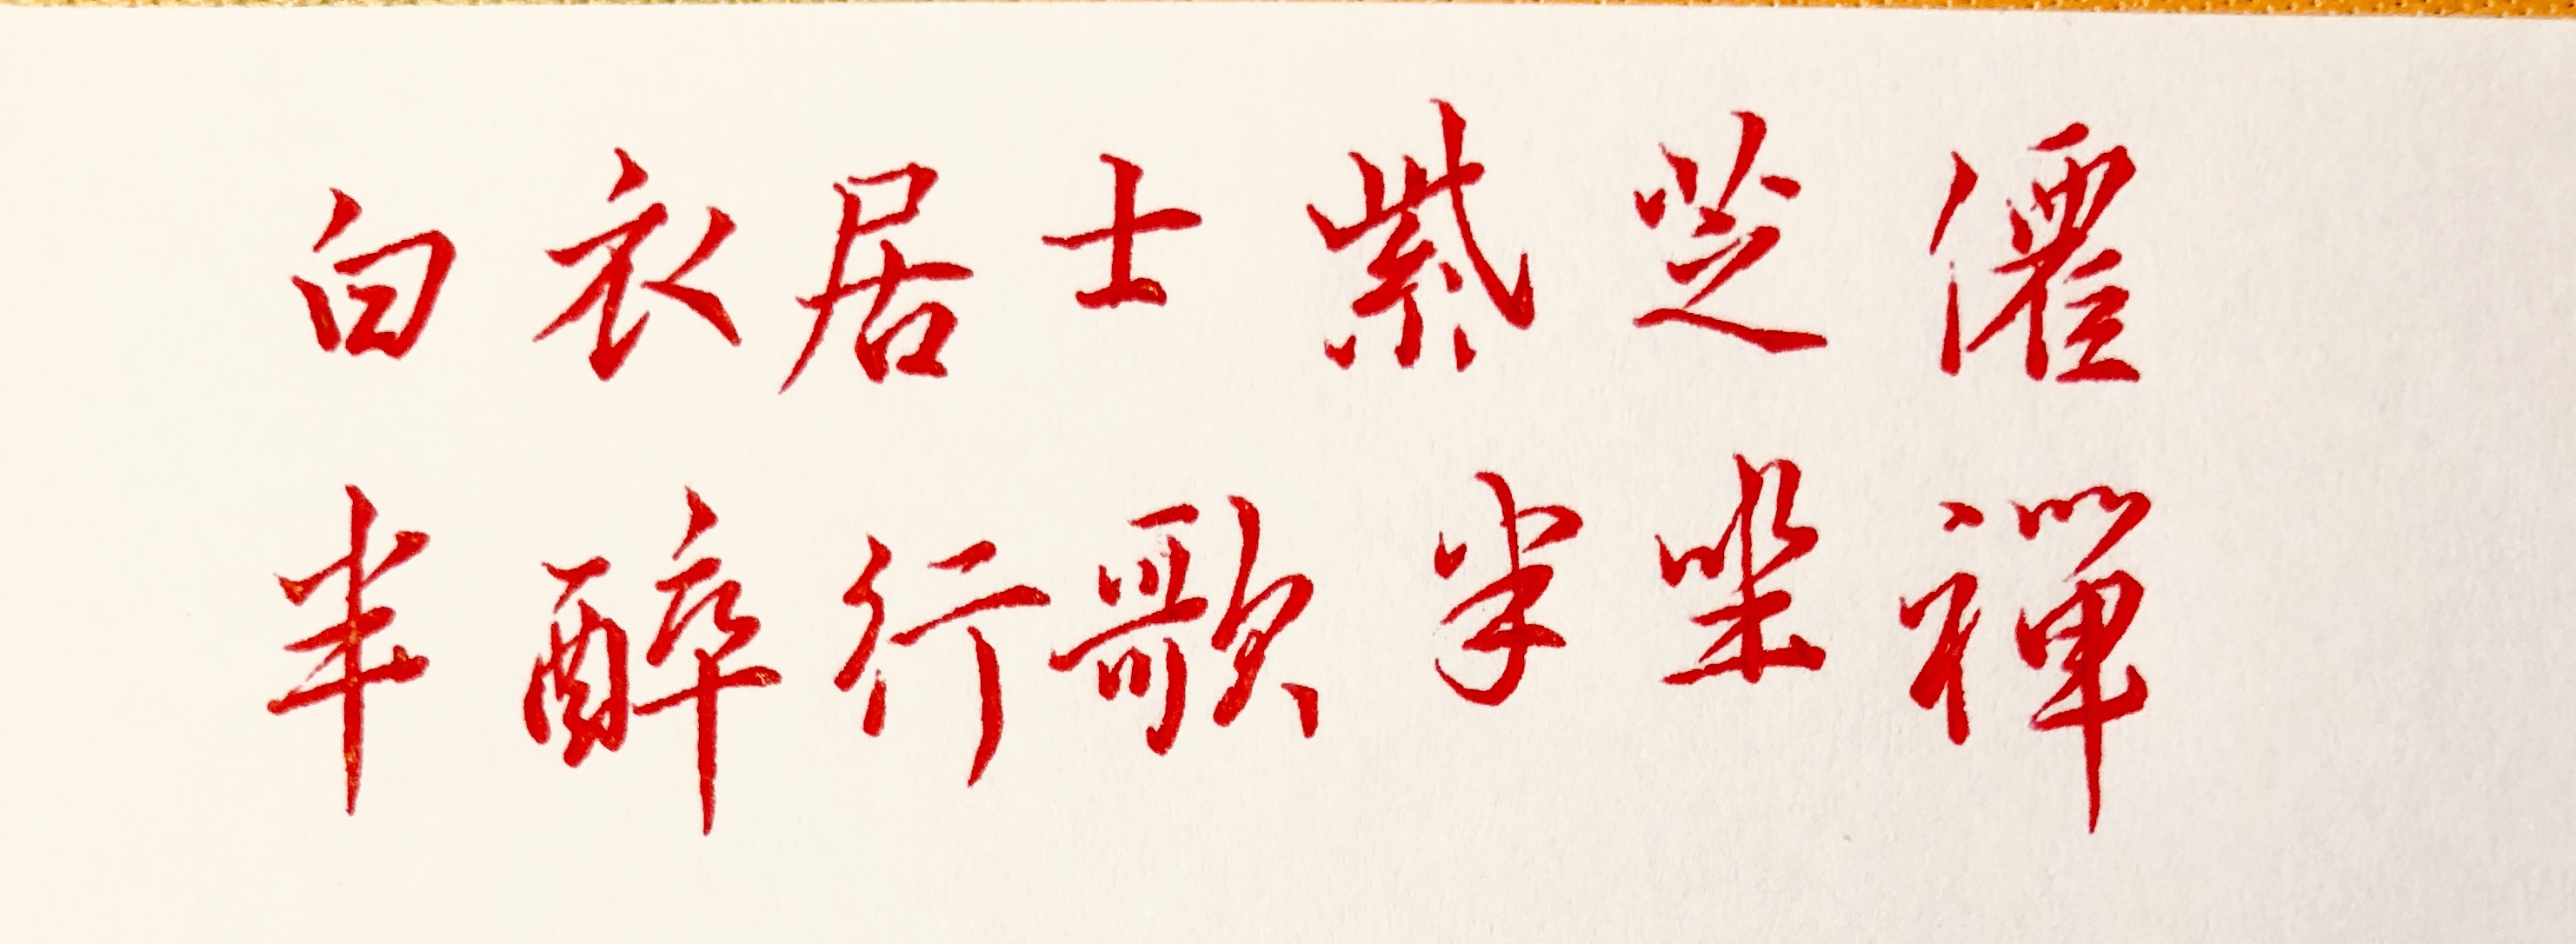 白衣居士紫芝僊
半醉行歌半坐禪